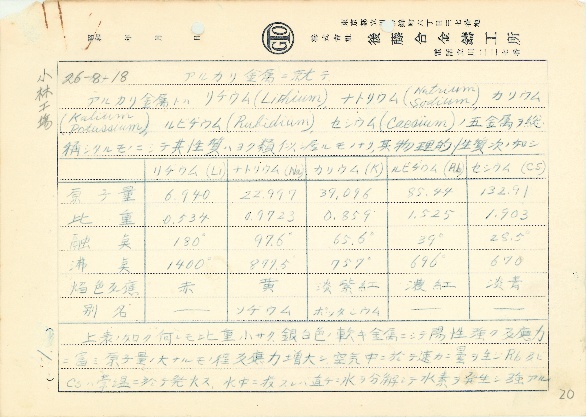 後藤合金鋳工所
株式会社
小林工場
26-8-18 アルカリ金属ニ就テ
アルカリ金属トハ リチウム(Lithium) ナトリウム(Natrium Sodium) カリウム
(Kalium Potassium) ルビヂウム(Rubidium) セシウム(Caesium)ノ五金属ヲ総
称シタルモノニシテ其性質ハヨク類似シ居ルモノナリ 其物理的性質次ノ如シ
リチウム(Li) ナトリウム(Na) カリウム(K) ルビヂウム(Rb) セシウム(CS)
原子量 6.940 22.997 39.096 85.44 132.91
比重 0.534 0.9723 0.859 1.525 1.903
融点 180° 97.6° 65.6° 39° 28.5°
沸点 1400° 877.5° 757° 696° 670
焔色反應 赤 黄 淡紫紅 濃紅 淡青
別名 — ソヂウム ポッタシウム — —
上表ノ如ク何レモ比重小サク銀白色ノ軟キ金属ニシテ陽性強ク反應力
ニ富ミ原子量ノ大ナルモノ程反應力増大シ空気中ニ於テ速カニ曇リ生ジ Rb 及ビ
Cs ハ常温ニ於テ発火ス 水中ニ投ズレバ直チニ水ヲ分解シテ水素ヲ発生シ強アル
20